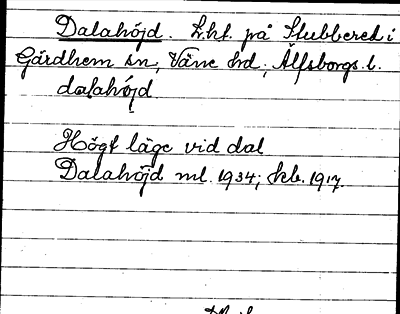 Dalahöjd. Lht. på Stubbered i
Gärdhem sn, Väne hd; Älfsborgs l.
dalahöjd
Högt läge vid dal
Dalahöjd ml. 1934; kb. 1917.